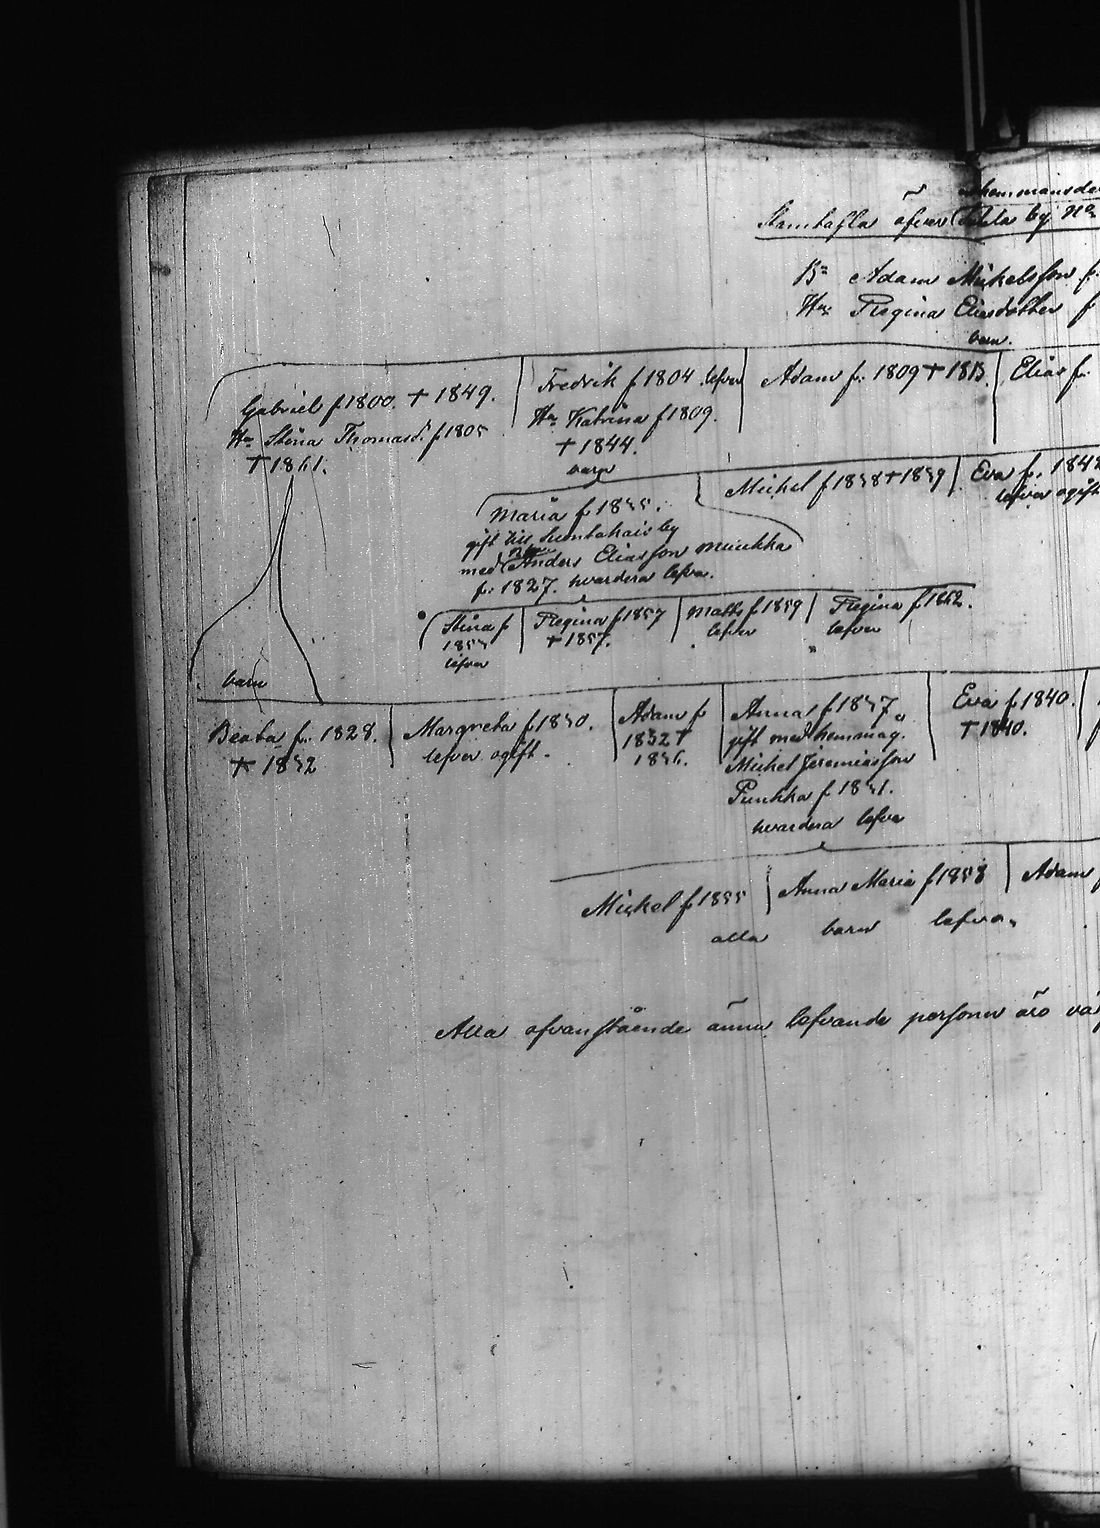 hemmansde
Stamtafla öfver by No
Bn Adam Mickelsson f.
Hn Regina Eliasdotter f
barn.
Gabriel f 1800. † 1849.
Hn Stina Thomasd. f 1805
† 1861.
Fredrik f 1804. lefver
Hn Katrina f 1809.
† 1844.
barn
Adam f. 1809 † 1813.
Elias f.
Maria f 1835.
gift till by
med Anders Eliasson
f. 1827. hvardera lefva.
Mickel f 1838 † 1839
Eva f. 1842
lefver ogift
Stina f
1855
lefver
Regina f 1857
† 1857.
Matts f 1859
lefver
Regina f 1862.
lefver
barn
Beata f. 1828.
† 1832
Margreta f 1830.
lefver ogift.
Adam f
1832 †
1836.
Anna f 1837
gift med hemmag.
Mickel Jeremiasson
f 1831.
hvardera lefva
Eva f 1840.
† 1840.
Mickel f 1855
Anna Maria f 1858
Adam f
alla barn lefva.
Alla ofvanstående ännu lefvande personer äro